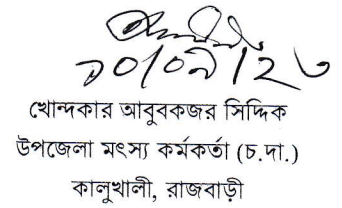 ১০/০৯/২৩
খোন্দকার আবুবকজর সিদ্দিক
উপজেলা মৎস্য কর্মকর্তা (চ.দা.)
কালুখালী, রাজবাড়ী